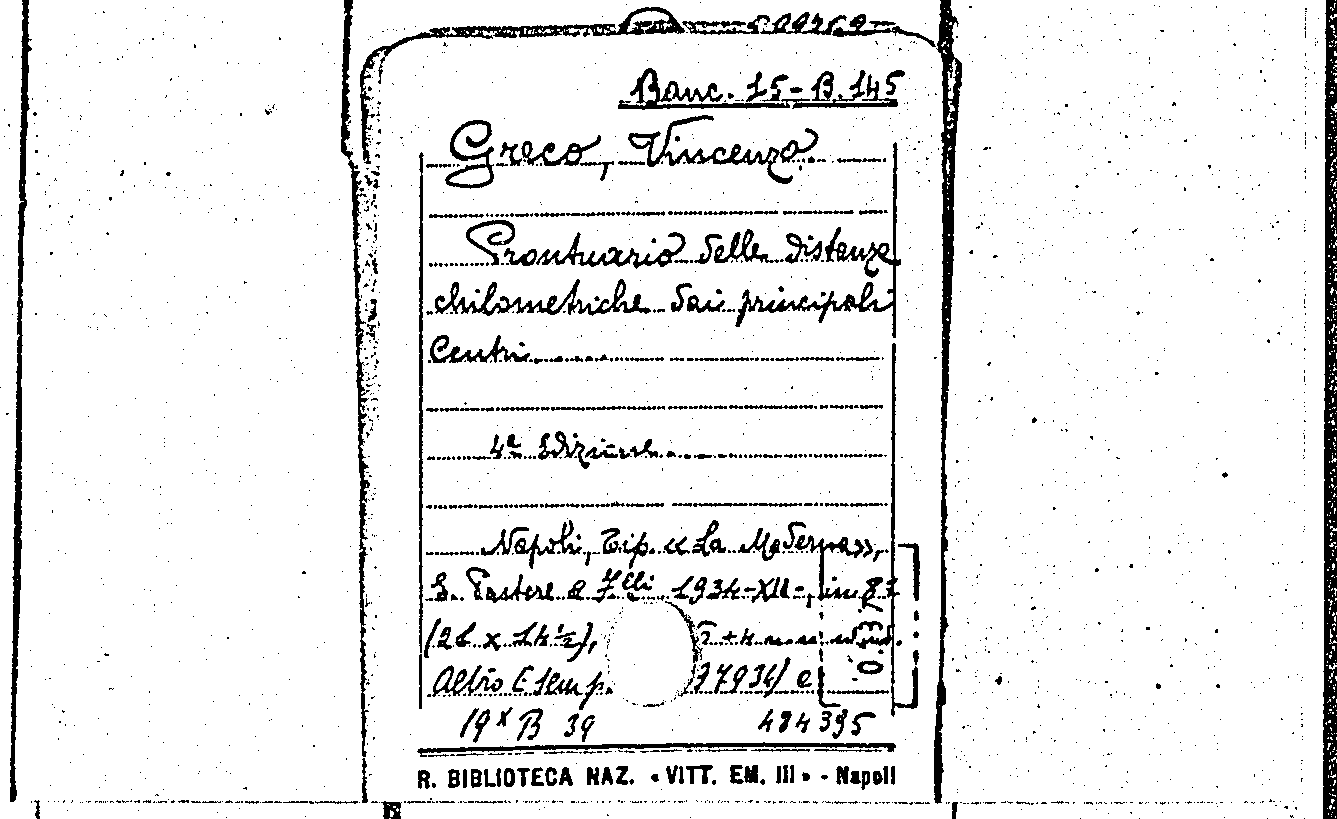 Banc. 15-B.145
Greco, Vincenzo
Prontuario delle distanze
chilometriche dai principali
Centri......
4ª Edizione......
Napoli, Tip. «La Moderna»,
S. Pastore e F.lli 1934-XII-, in 8º
(21 x 14½),
Altro Esemp. 37934) e
19ˣ B 39 484395
R. BIBLIOTECA NAZ. «VITT. EM. III» - Napoli